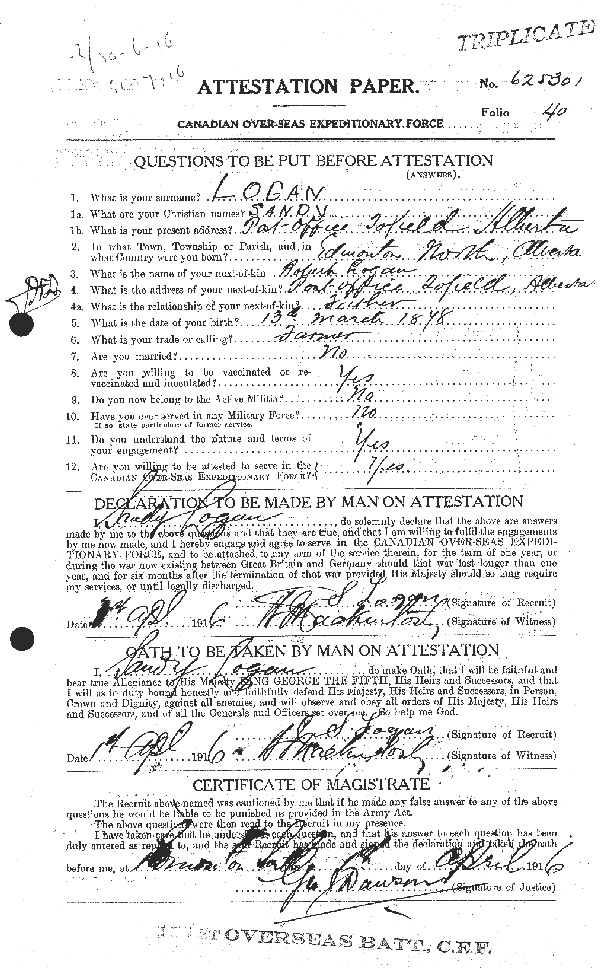 TRIPLICATE
ATTESTATION PAPER.
No. 625301
Folio 40
CANADIAN OVER-SEAS EXPEDITIONARY FORCE
QUESTIONS TO BE PUT BEFORE ATTESTATION
(ANSWERS).
1. What is your surname? LOGAN
1a. What are your Christian names? SANDY
1b. What is your present address? Post Office Tofield, Alberta
2. In what Town, Township or Parish, and in
what Country were you born? Edmonton North, Alberta
3. What is the name of your next-of-kin Robert Logan
4. What is the address of your next-of-kin? Post office Tofield, Alberta
4a. What is the relationship of your next-of-kin? Father
5. What is the date of your birth? 13th March 1898
6. What is your trade or calling? Farmer
7. Are you married? No
8. Are you willing to be vaccinated or re-
vaccinated and inoculated? Yes
9. Do you now belong to the Active Militia? No
10. Have you ever served in any Military Force? No
If so, state particulars of former service.
11. Do you understand the nature and terms of
your engagement? Yes
12. Are you willing to be attested to serve in the
CANADIAN OVER-SEAS EXPEDITIONARY FORCE? Yes.
DECLARATION TO BE MADE BY MAN ON ATTESTATION
I, Sandy Logan, do solemnly declare that the above are answers
made by me to the above questions and that they are true, and that I am willing to fulfil the engagements
by me now made, and I hereby engage and agree to serve in the CANADIAN OVER-SEAS EXPEDI-
TIONARY FORCE, and to be attached to any arm of the service therein, for the term of one year, or
during the war now existing between Great Britain and Germany should that war last longer than one
year, and for six months after the termination of that war provided His Majesty should so long require
my services, or until legally discharged.
S Logan (Signature of Recruit)
Date 1st Apl 1916 (Signature of Witness)
OATH TO BE TAKEN BY MAN ON ATTESTATION
I, Sandy Logan, do make Oath, that I will be faithful and
bear true Allegiance to His Majesty KING GEORGE THE FIFTH, His Heirs and Successors, and that
I will as in duty bound honestly and faithfully defend His Majesty, His Heirs and Successors, in Person,
Crown and Dignity, against all enemies, and will observe and obey all orders of His Majesty, His Heirs
and Successors, and of all the Generals and Officers set over me. So help me God.
S Logan (Signature of Recruit)
Date 1st Apl 1916 (Signature of Witness)
CERTIFICATE OF MAGISTRATE
The Recruit above named was cautioned by me that if he made any false answer to any of the above
questions he would be liable to be punished as provided in the Army Act.
The above questions were then read to the Recruit in my presence.
I have taken care that he understands each question, and that his answer to each question has been
duly entered as replied to, and the said Recruit has made and signed the declaration and taken the oath
before me, at Edmonton day of April 1916
Geo Dawson (Signature of Justice)
OVERSEAS BATT., C.E.F.